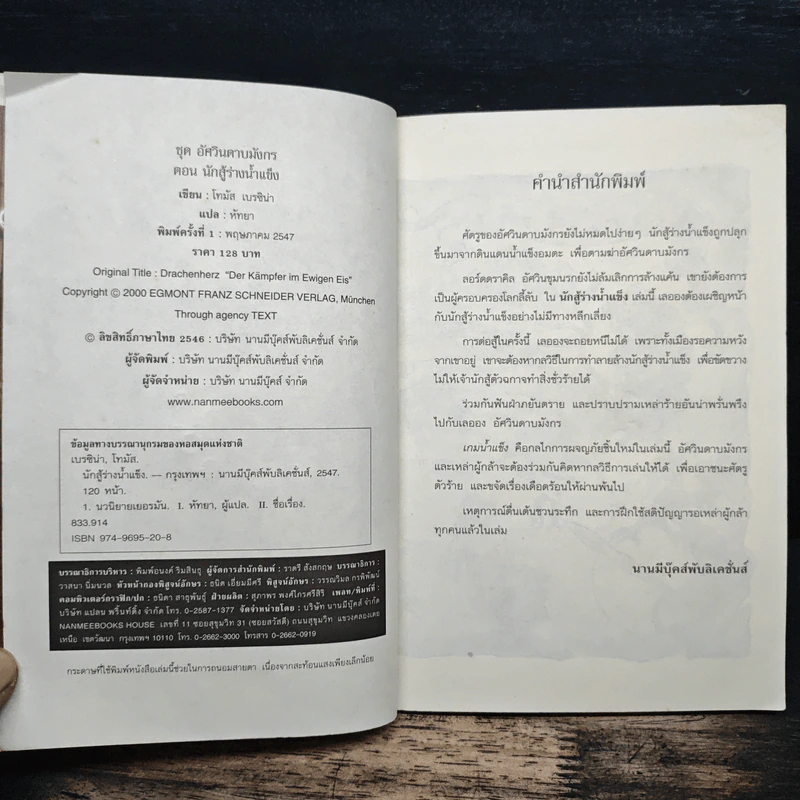 ชุด อัศวินดาบมังกร
ตอน นักสู้ร่างน้ำแข็ง
เขียน : โทมัส เบรซิน่า
แปล : หัทยา
พิมพ์ครั้งที่ 1 : พฤษภาคม 2547
ราคา 128 บาท
Original Title : Drachenherz "Der Kämpfer im Ewigen Eis"
Copyright © 2000 EGMONT FRANZ SCHNEIDER VERLAG, München
Through agency TEXT
© ลิขสิทธิ์ภาษาไทย 2546 : บริษัท นานมีบุ๊คส์พับลิเคชั่นส์ จำกัด
ผู้จัดพิมพ์ : บริษัท นานมีบุ๊คส์พับลิเคชั่นส์ จำกัด
ผู้จัดจำหน่าย : บริษัท นานมีบุ๊คส์ จำกัด
www.nanmeebooks.com
ข้อมูลทางบรรณานุกรมของหอสมุดแห่งชาติ
เบรซิน่า, โทมัส.
นักสู้ร่างน้ำแข็ง. — กรุงเทพฯ : นานมีบุ๊คส์พับลิเคชั่นส์, 2547.
120 หน้า.
1. นวนิยายเยอรมัน. I. หัทยา, ผู้แปล. II. ชื่อเรื่อง.
833.914
ISBN 974-9695-20-8
บรรณาธิการบริหาร : พิมพ์อนงค์ ริมสินธุ ผู้จัดการสำนักพิมพ์ : ราตรี สังสกฤษ บรรณาธิการ :
วาสนา นิ่มนวล หัวหน้ากองพิสูจน์อักษร : ธนิต เยี่ยมมีศรี พิสูจน์อักษร : วรรณวิมล กรพิพัฒน์
คอมพิวเตอร์กราฟิก/ปก : ธนิดา สาธุพันธุ์ ฝ่ายผลิต : สุภาพร พงศ์ไกรศรีสิริ เพลท/พิมพ์ที่ :
บริษัท แปลน พริ้นท์ติ้ง จำกัด โทร. 0-2587-1377 จัดจำหน่ายโดย : บริษัท นานมีบุ๊คส์ จำกัด
NANMEEBOOKS HOUSE เลขที่ 11 ซอยสุขุมวิท 31 (ซอยสวัสดี) ถนนสุขุมวิท แขวงคลองเตย
เหนือ เขตวัฒนา กรุงเทพฯ 10110 โทร. 0-2662-3000 โทรสาร 0-2662-0919
กระดาษที่ใช้พิมพ์หนังสือเล่มนี้ช่วยในการถนอมสายตา เนื่องจากสะท้อนแสงเพียงเล็กน้อย
คำนำสำนักพิมพ์
ศัตรูของอัศวินดาบมังกรยังไม่หมดไปง่ายๆ นักสู้ร่างน้ำแข็งถูกปลุก
ขึ้นมาจากดินแดนน้ำแข็งอมตะ เพื่อตามฆ่าอัศวินดาบมังกร
ลอร์ดดราคิล อัศวินขุมนรกยังไม่ล้มเลิกการล้างแค้น เขายังต้องการ
เป็นผู้ครอบครองโลกลี้ลับ ใน นักสู้ร่างน้ำแข็ง เล่มนี้ เลอองต้องเผชิญหน้า
กับนักสู้ร่างน้ำแข็งอย่างไม่มีทางหลีกเลี่ยง
การต่อสู้ในครั้งนี้ เลอองจะถอยหนีไม่ได้ เพราะทั้งเมืองรอความหวัง
จากเขาอยู่ เขาจะต้องหากลวิธีในการทำลายล้างนักสู้ร่างน้ำแข็ง เพื่อขัดขวาง
ไม่ให้เจ้านักสู้ตัวฉกาจทำสิ่งชั่วร้ายได้
ร่วมกันฟันฝ่าภยันตราย และปราบปรามเหล่าร้ายอันน่าพรั่นพรึง
ไปกับเลออง อัศวินดาบมังกร
เกมน้ำแข็ง คือกลไกการผจญภัยชิ้นใหม่ในเล่มนี้ อัศวินดาบมังกร
และเหล่าผู้กล้าจะต้องร่วมกันคิดหากลวิธีการเล่นให้ได้ เพื่อเอาชนะศัตรู
ตัวร้าย และขจัดเรื่องเดือดร้อนให้ผ่านพ้นไป
เหตุการณ์ตื่นเต้นชวนระทึก และการฝึกใช้สติปัญญารอเหล่าผู้กล้า
ทุกคนแล้วในเล่ม
นานมีบุ๊คส์พับลิเคชั่นส์